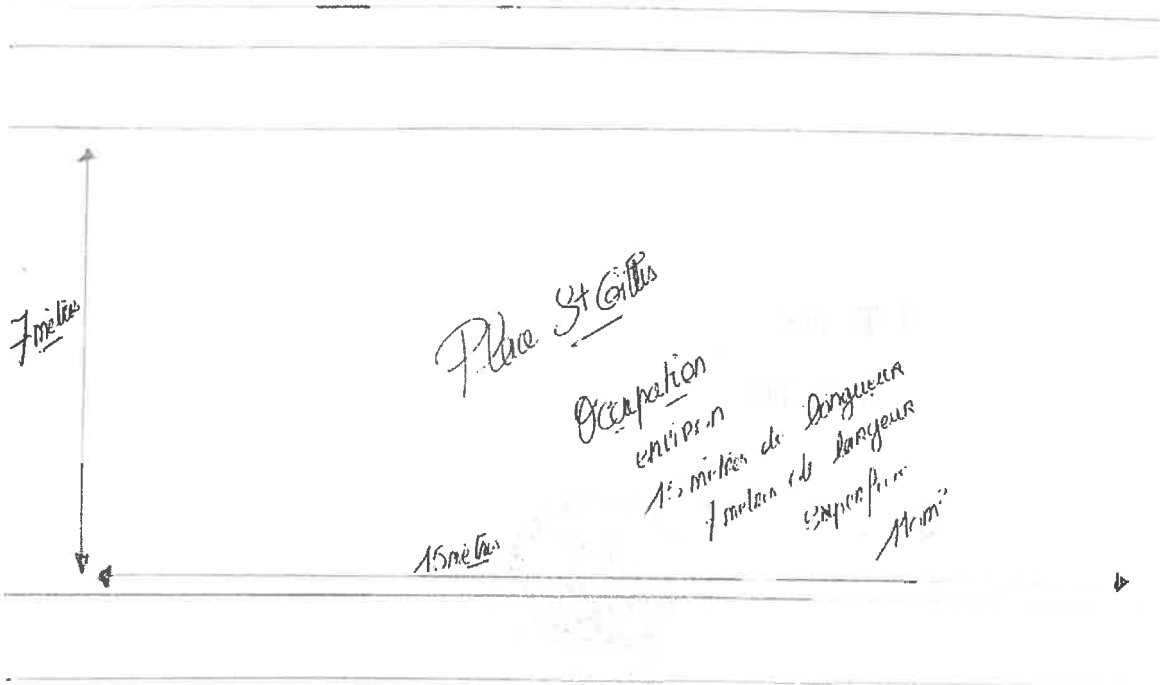 7 mètres
Place St Gilles
Occupation
environ
15 mètres de longueur
7 metres de largeur
superficie
15 mètres